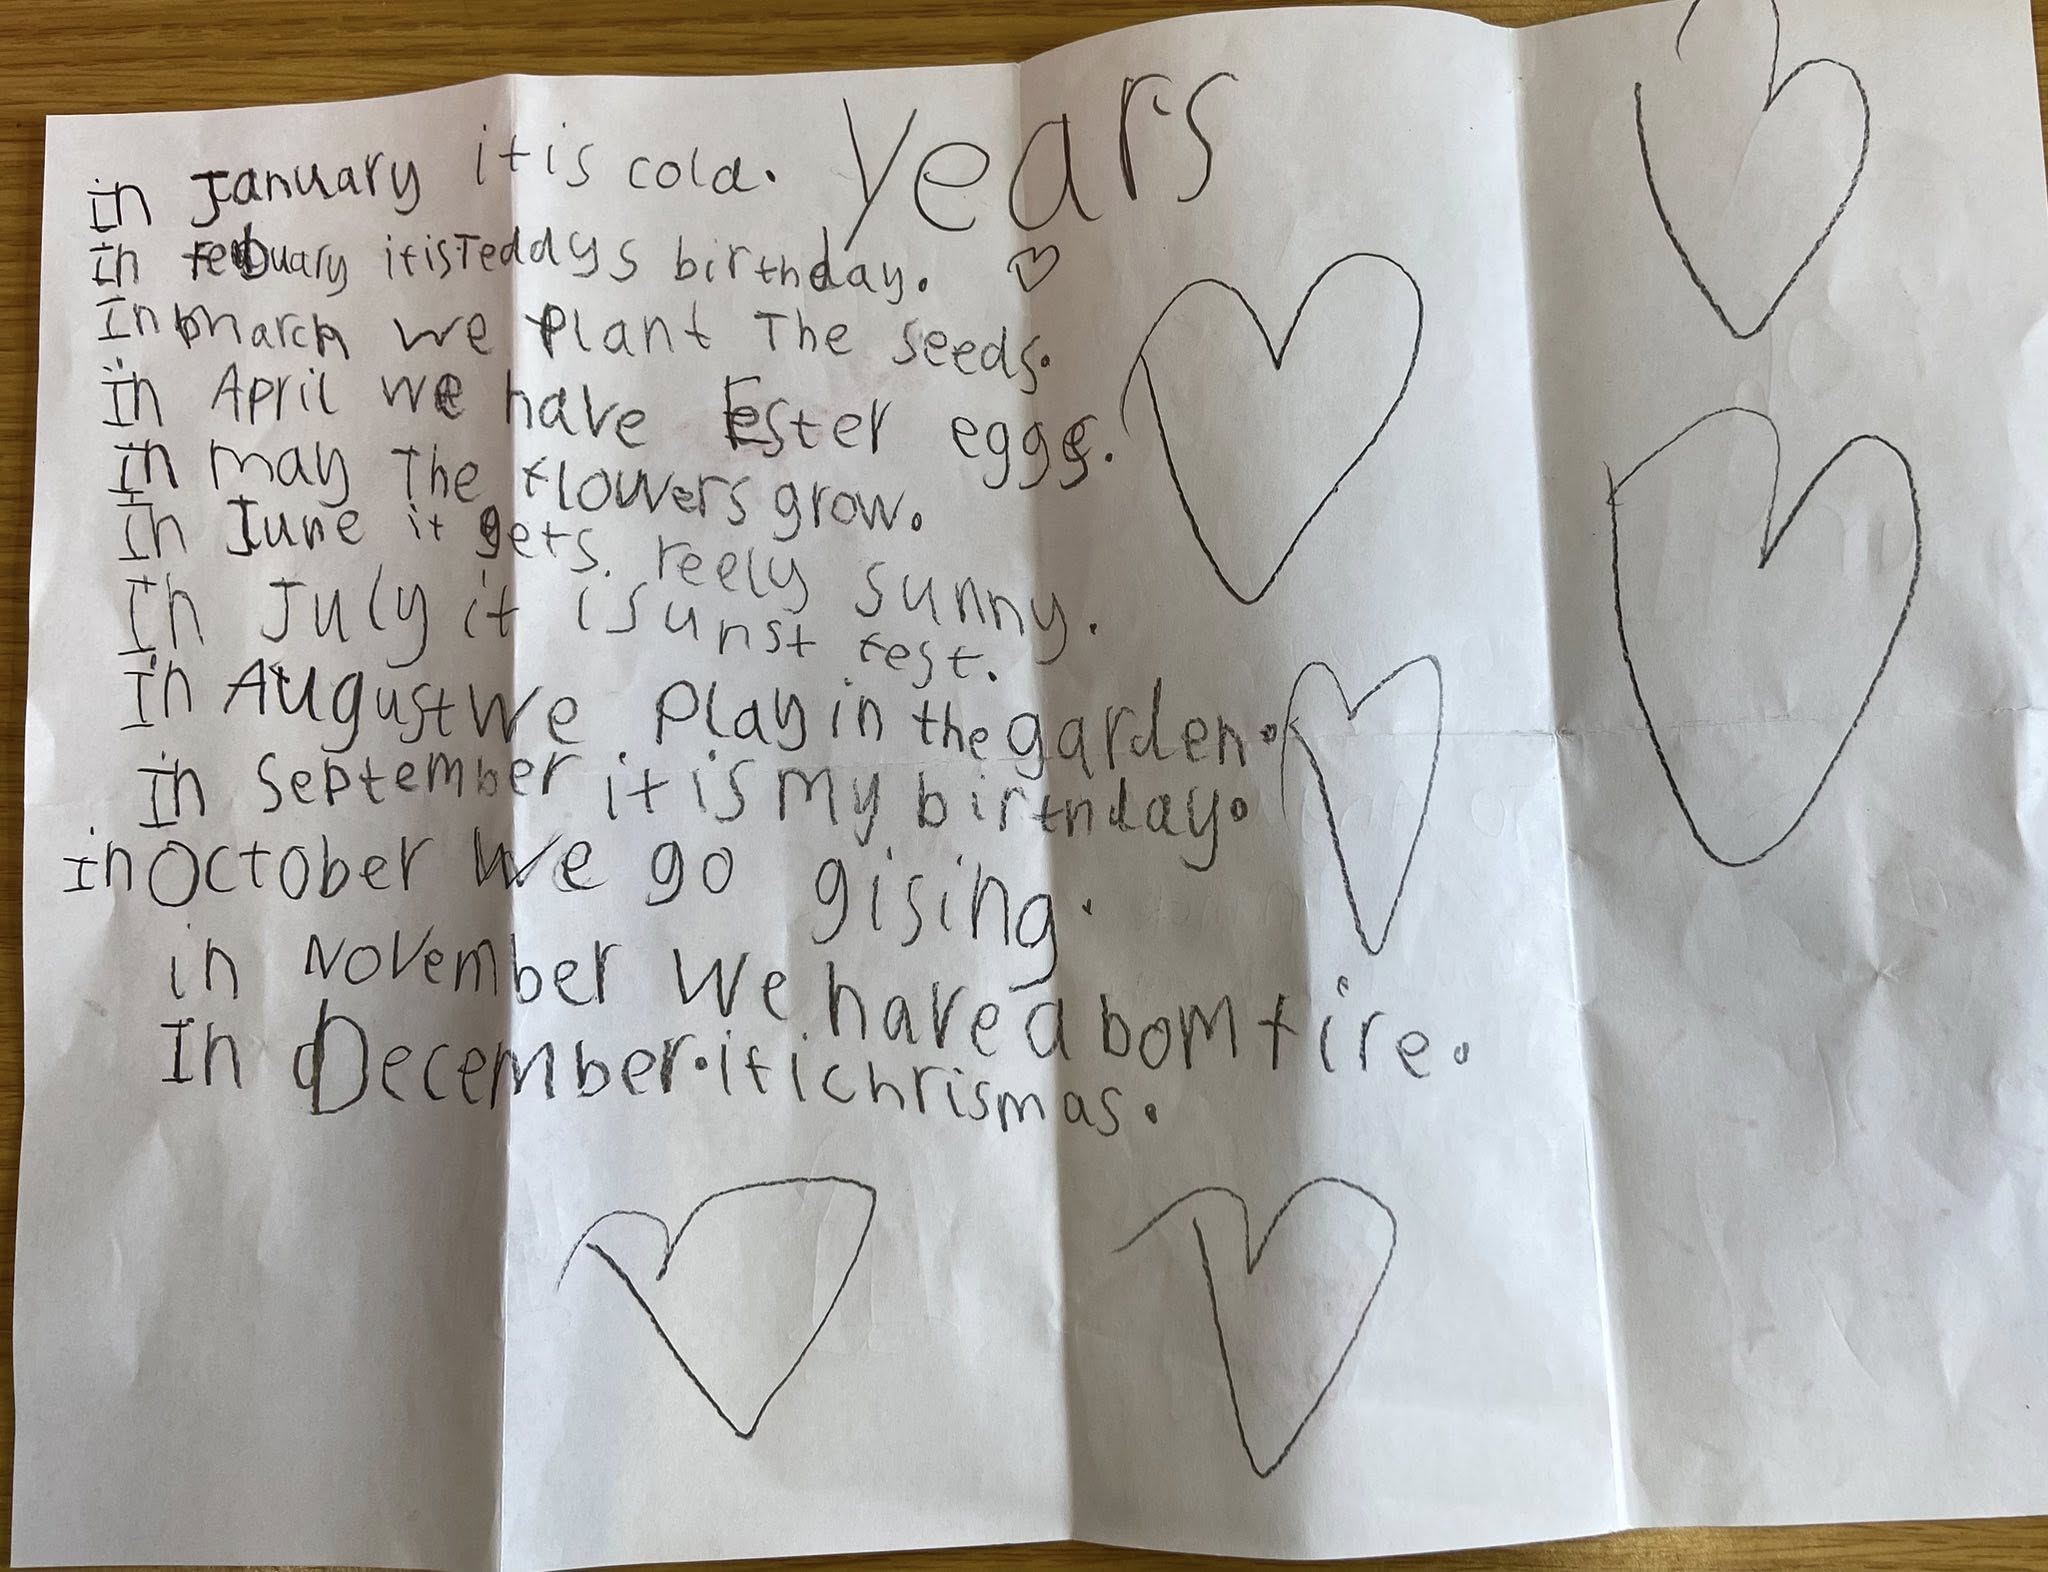 years
in January it is cold.
in febuary itis Teddys birthday.
In march we Plant The seeds.
in April we have Ester eggs.
in may The flowers grow.
In June it gets reely sunny.
In July it is unst fest.
in August we play in the garden.
in September it is my birthday.
in October we go gising.
in November we have a bomfire.
In December. it i chrismas.